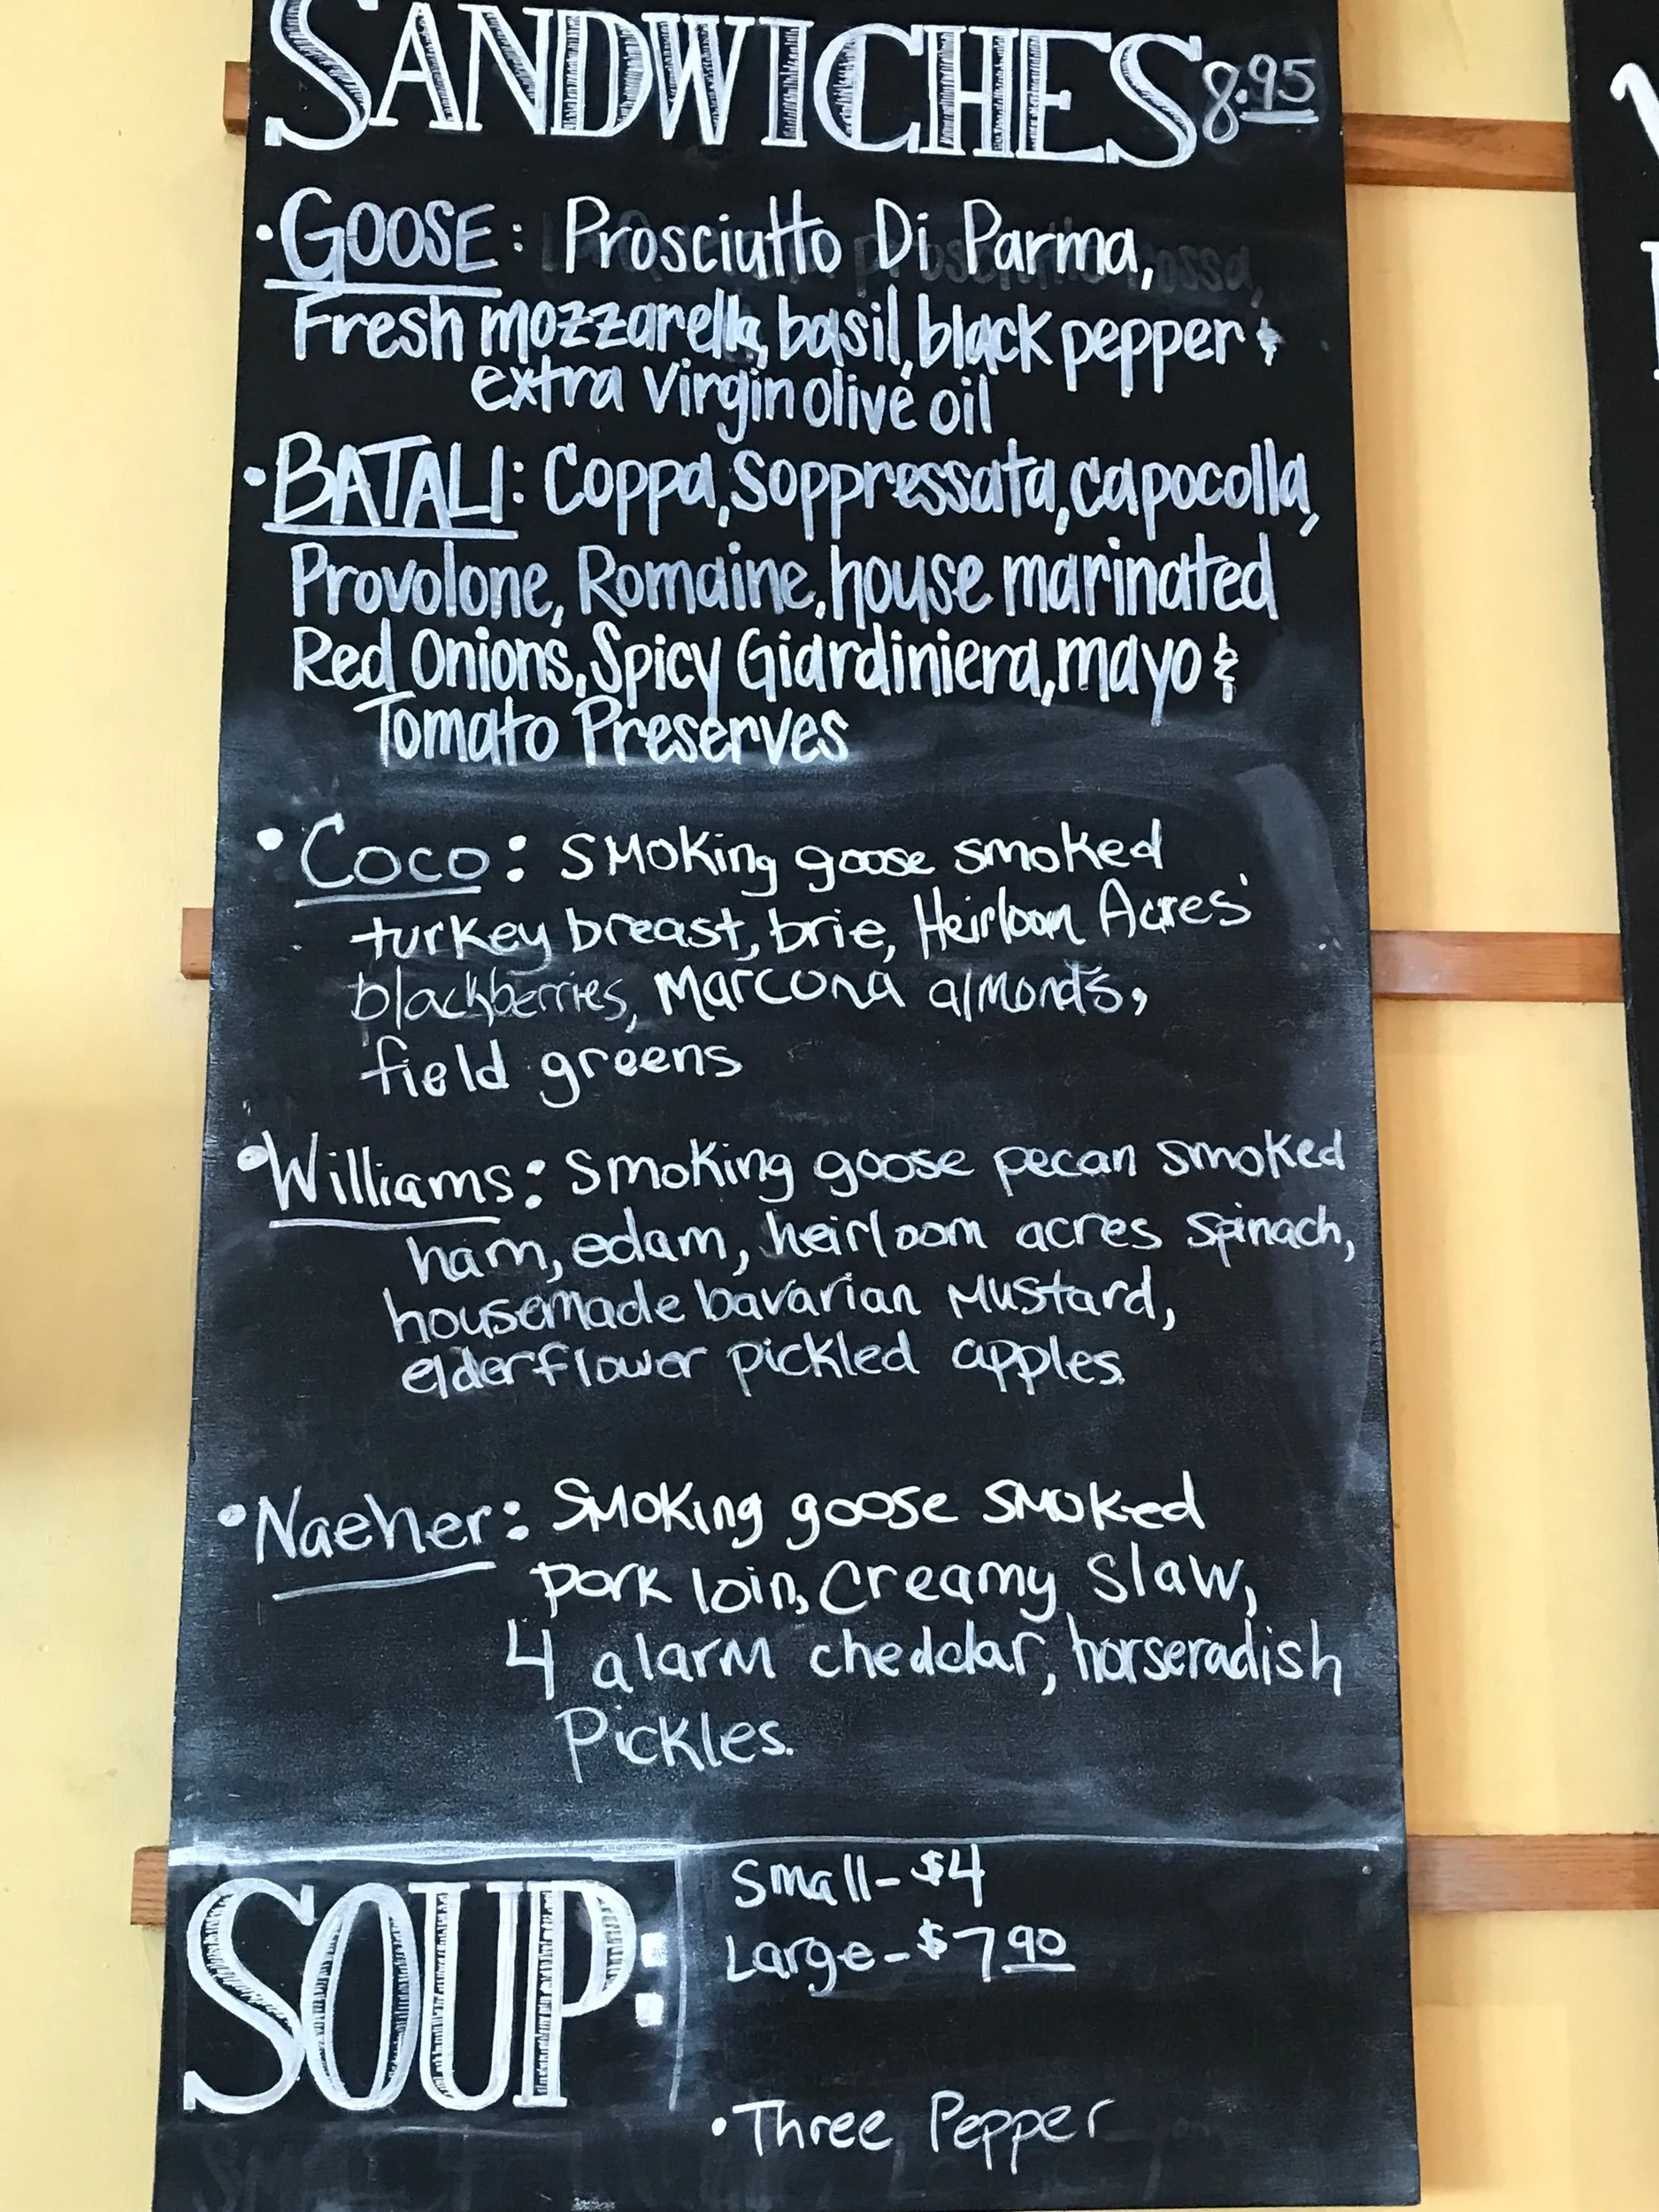 SANDWICHES 8.95
• GOOSE: Prosciutto Di Parma,
Fresh mozzarella, basil, black pepper &
extra virgin olive oil
• BATALI: Coppa, Soppressata, capocolla,
Provolone, Romaine, house marinated
Red Onions, Spicy Giardiniera, mayo &
Tomato Preserves
• Coco: Smoking goose smoked
turkey breast, brie, Heirloom Acres'
blackberries, Marcona almonds,
field greens
• Williams: Smoking goose pecan smoked
ham, edam, heirloom acres spinach,
housemade bavarian mustard,
elderflower pickled apples.
• Naeher: Smoking goose smoked
pork loin, creamy slaw,
4 alarm cheddar, horseradish
Pickles.
SOUP:
Small - $4
Large - $7.90
• Three Pepper